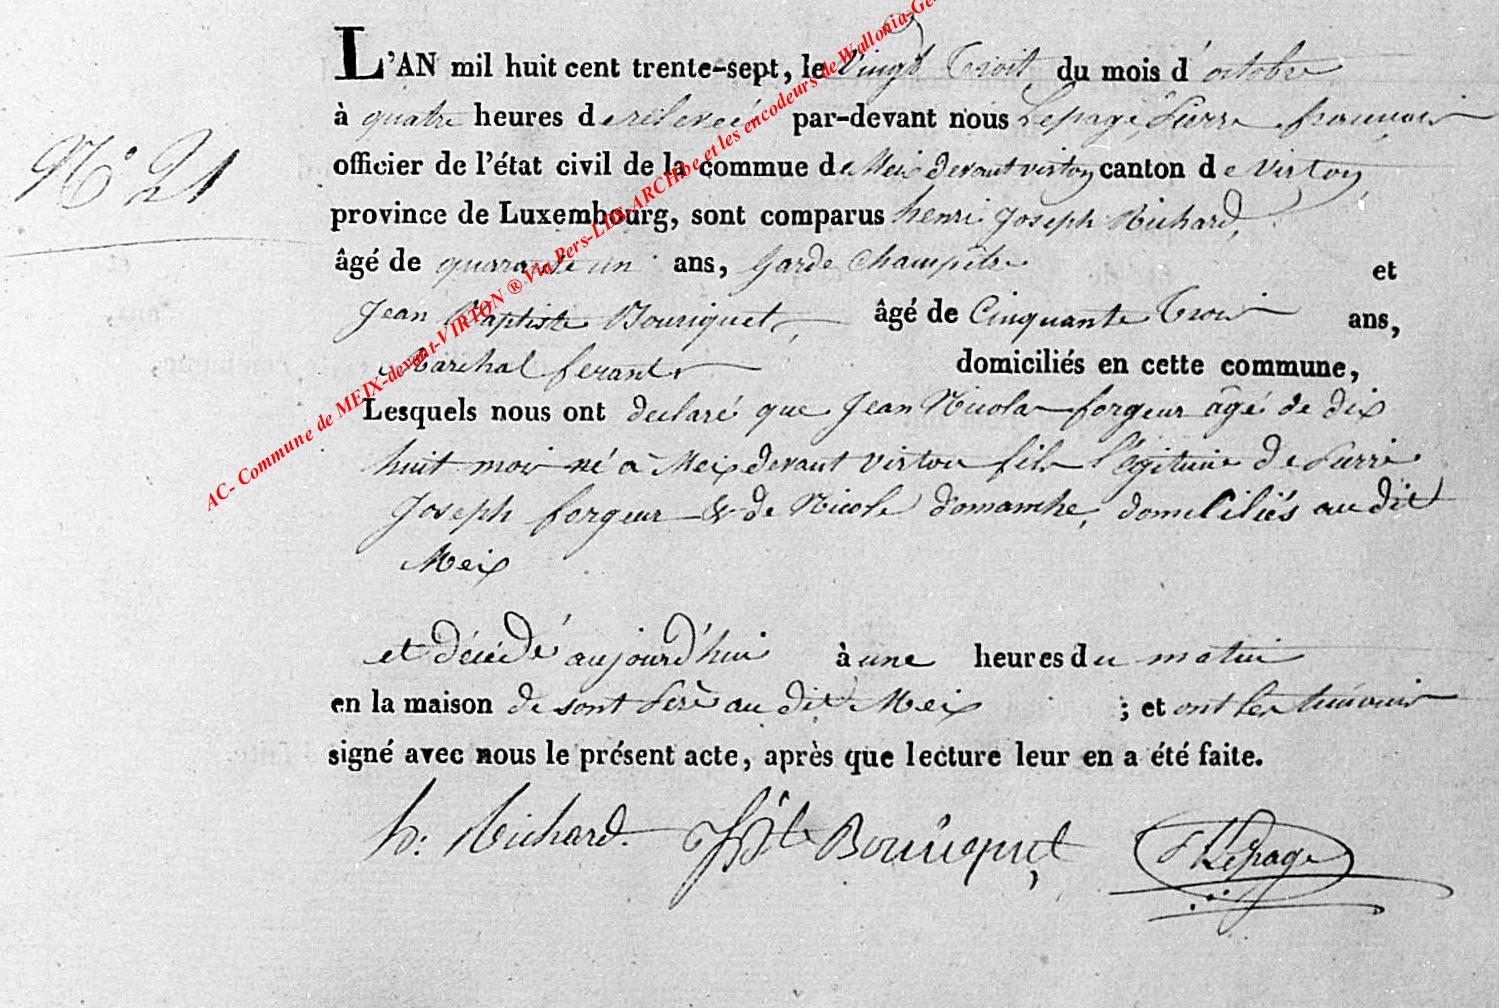 L'AN mil huit cent trente-sept, le vingt troit du mois d'octobre
à quatre heures de relevée par-devant nous Lepage Pierre francois
N° 21
officier de l'état civil de la commue de Meix devant virton canton de virton
province de Luxembourg, sont comparus henri Joseph Richard,
âgé de quarante un ans, Garde Champêtre et
Jean Baptiste Bouriquet, âgé de Cinquante Trois ans,
Maréchal ferant domiciliés en cette commune,
Lesquels nous ont declaré que Jean Nicolas forgeur âgé de dix
huit mois né à Meix devant virton fils l'égitime de Pierre
Joseph forgeur & de Nicole domanche, domiciliés au dit
Meix
et décédé aujourd'hui à une heures du matin
en la maison de sont Père au dit Meix ; et ont les témoins
signé avec nous le présent acte, après que lecture leur en a été faite.
h: Richard. JBte Bouriquet PLepage
AC- Commune de MEIX-devant-VIRTON ® Via Pers-LDS-ARCH.be et les encodeurs de Wallonia-Ge